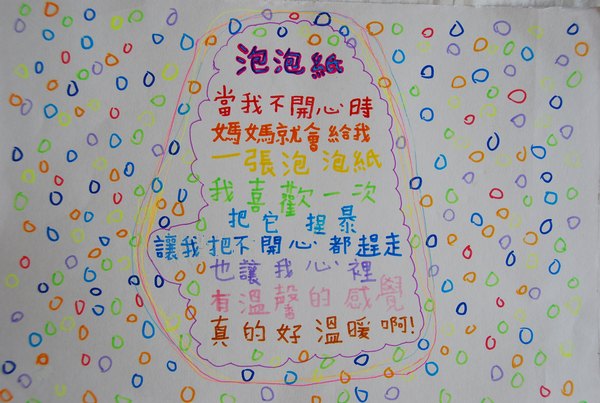 泡泡紙
當我不開心時
媽媽就會給我
一張泡泡紙
我喜歡一次
把它捏暴
讓我把不開心都趕走
也讓我心裡
有溫馨的感覺
真的好溫暖啊!